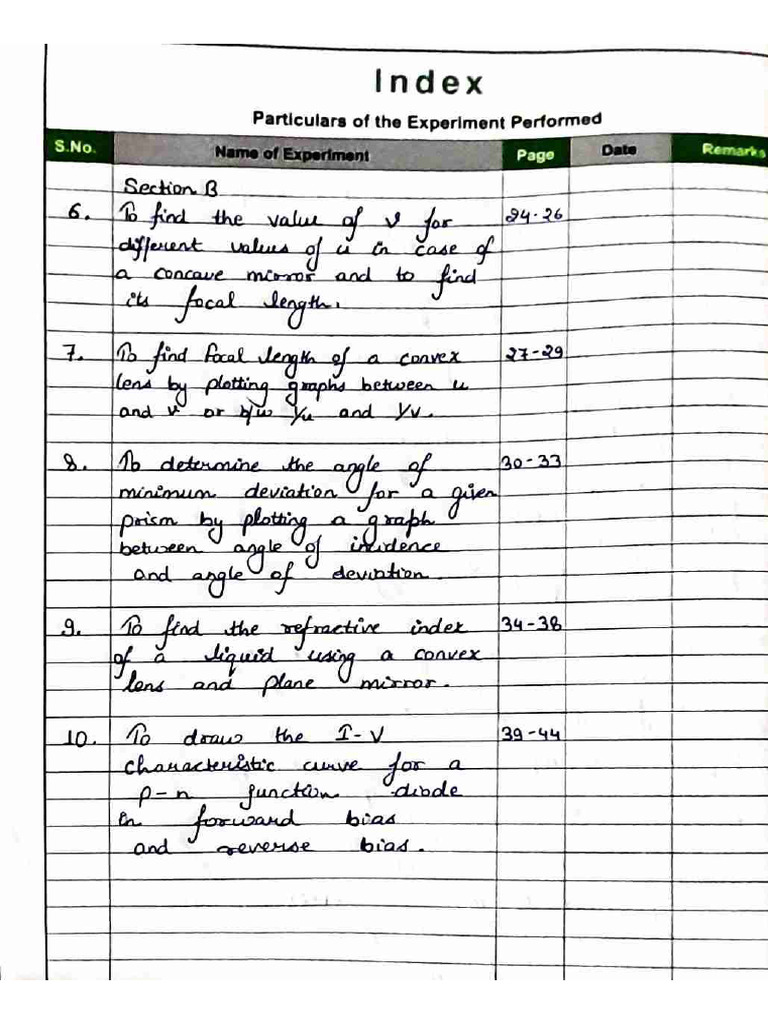 Index
Particulars of the Experiment Performed
S.No. Name of Experiment Page Date Remarks
Section B
6. To find the value of v for 24-26
different values of u in case of
a concave mirror and to find
its focal length.
7. To find focal length of a convex 27-29
lens by plotting graphs between u
and v or b/w 1/u and 1/v.
8. To determine the angle of 30-33
minimum deviation for a given
prism by plotting a graph
between angle of incidence
and angle of deviation.
9. To find the refractive index 34-38
of a liquid using a convex
lens and plane mirror.
10. To draw the I-V 39-44
characteristic curve for a
p-n junction diode
in forward bias
and reverse bias.